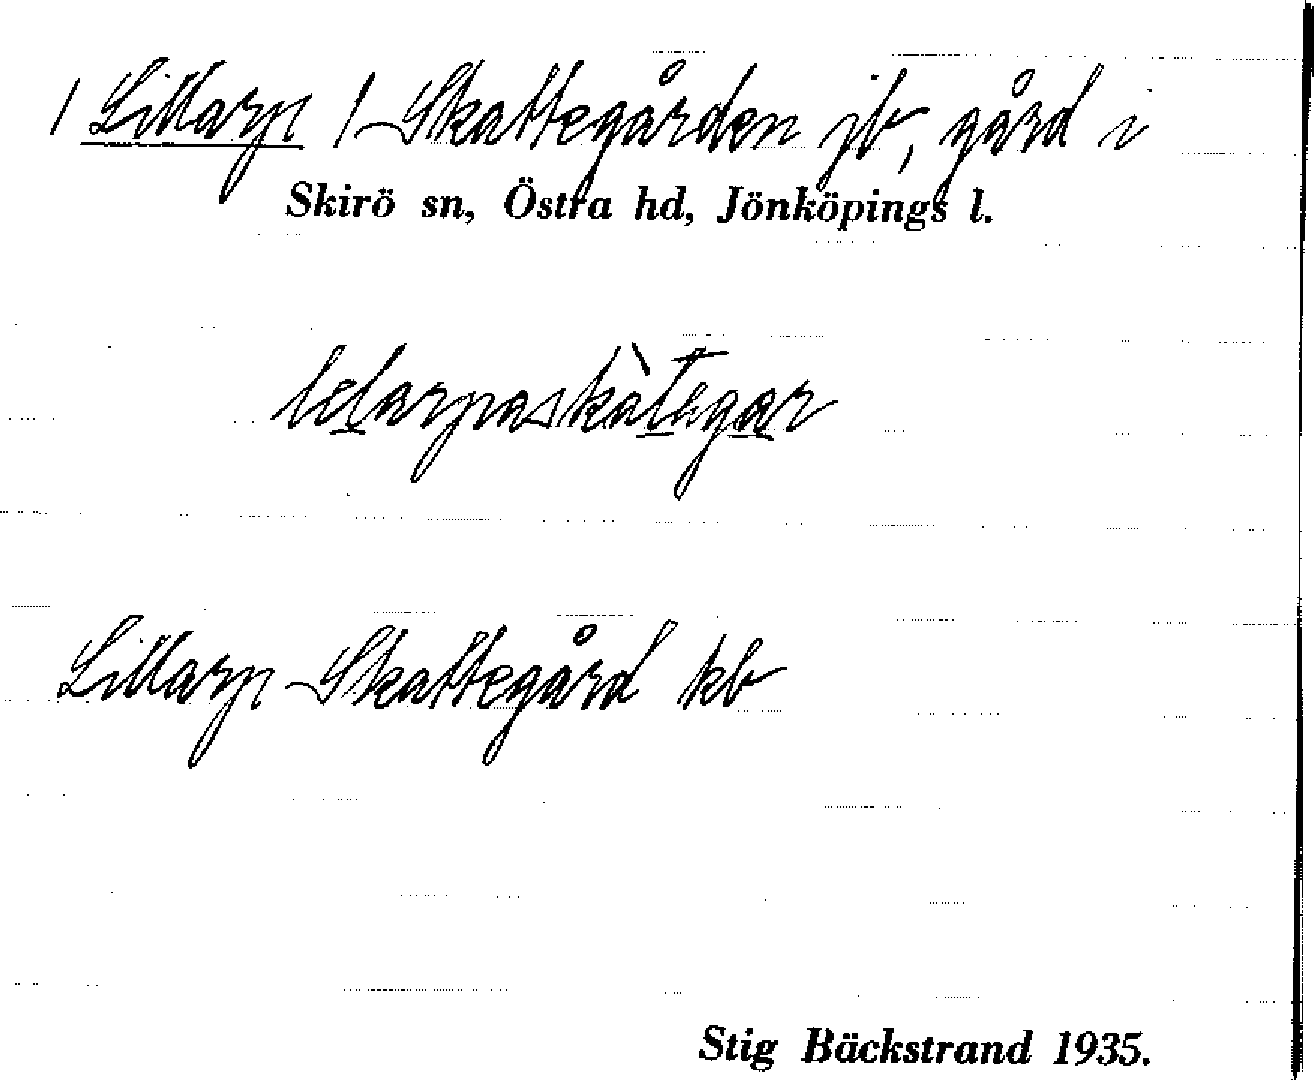 / Lillarp /-Skattegården jb, gård i
Skirö sn, Östra hd, Jönköpings l.
lelarpaskàtegar
Lillarp-Skattegård kb
Stig Bäckstrand 1935.